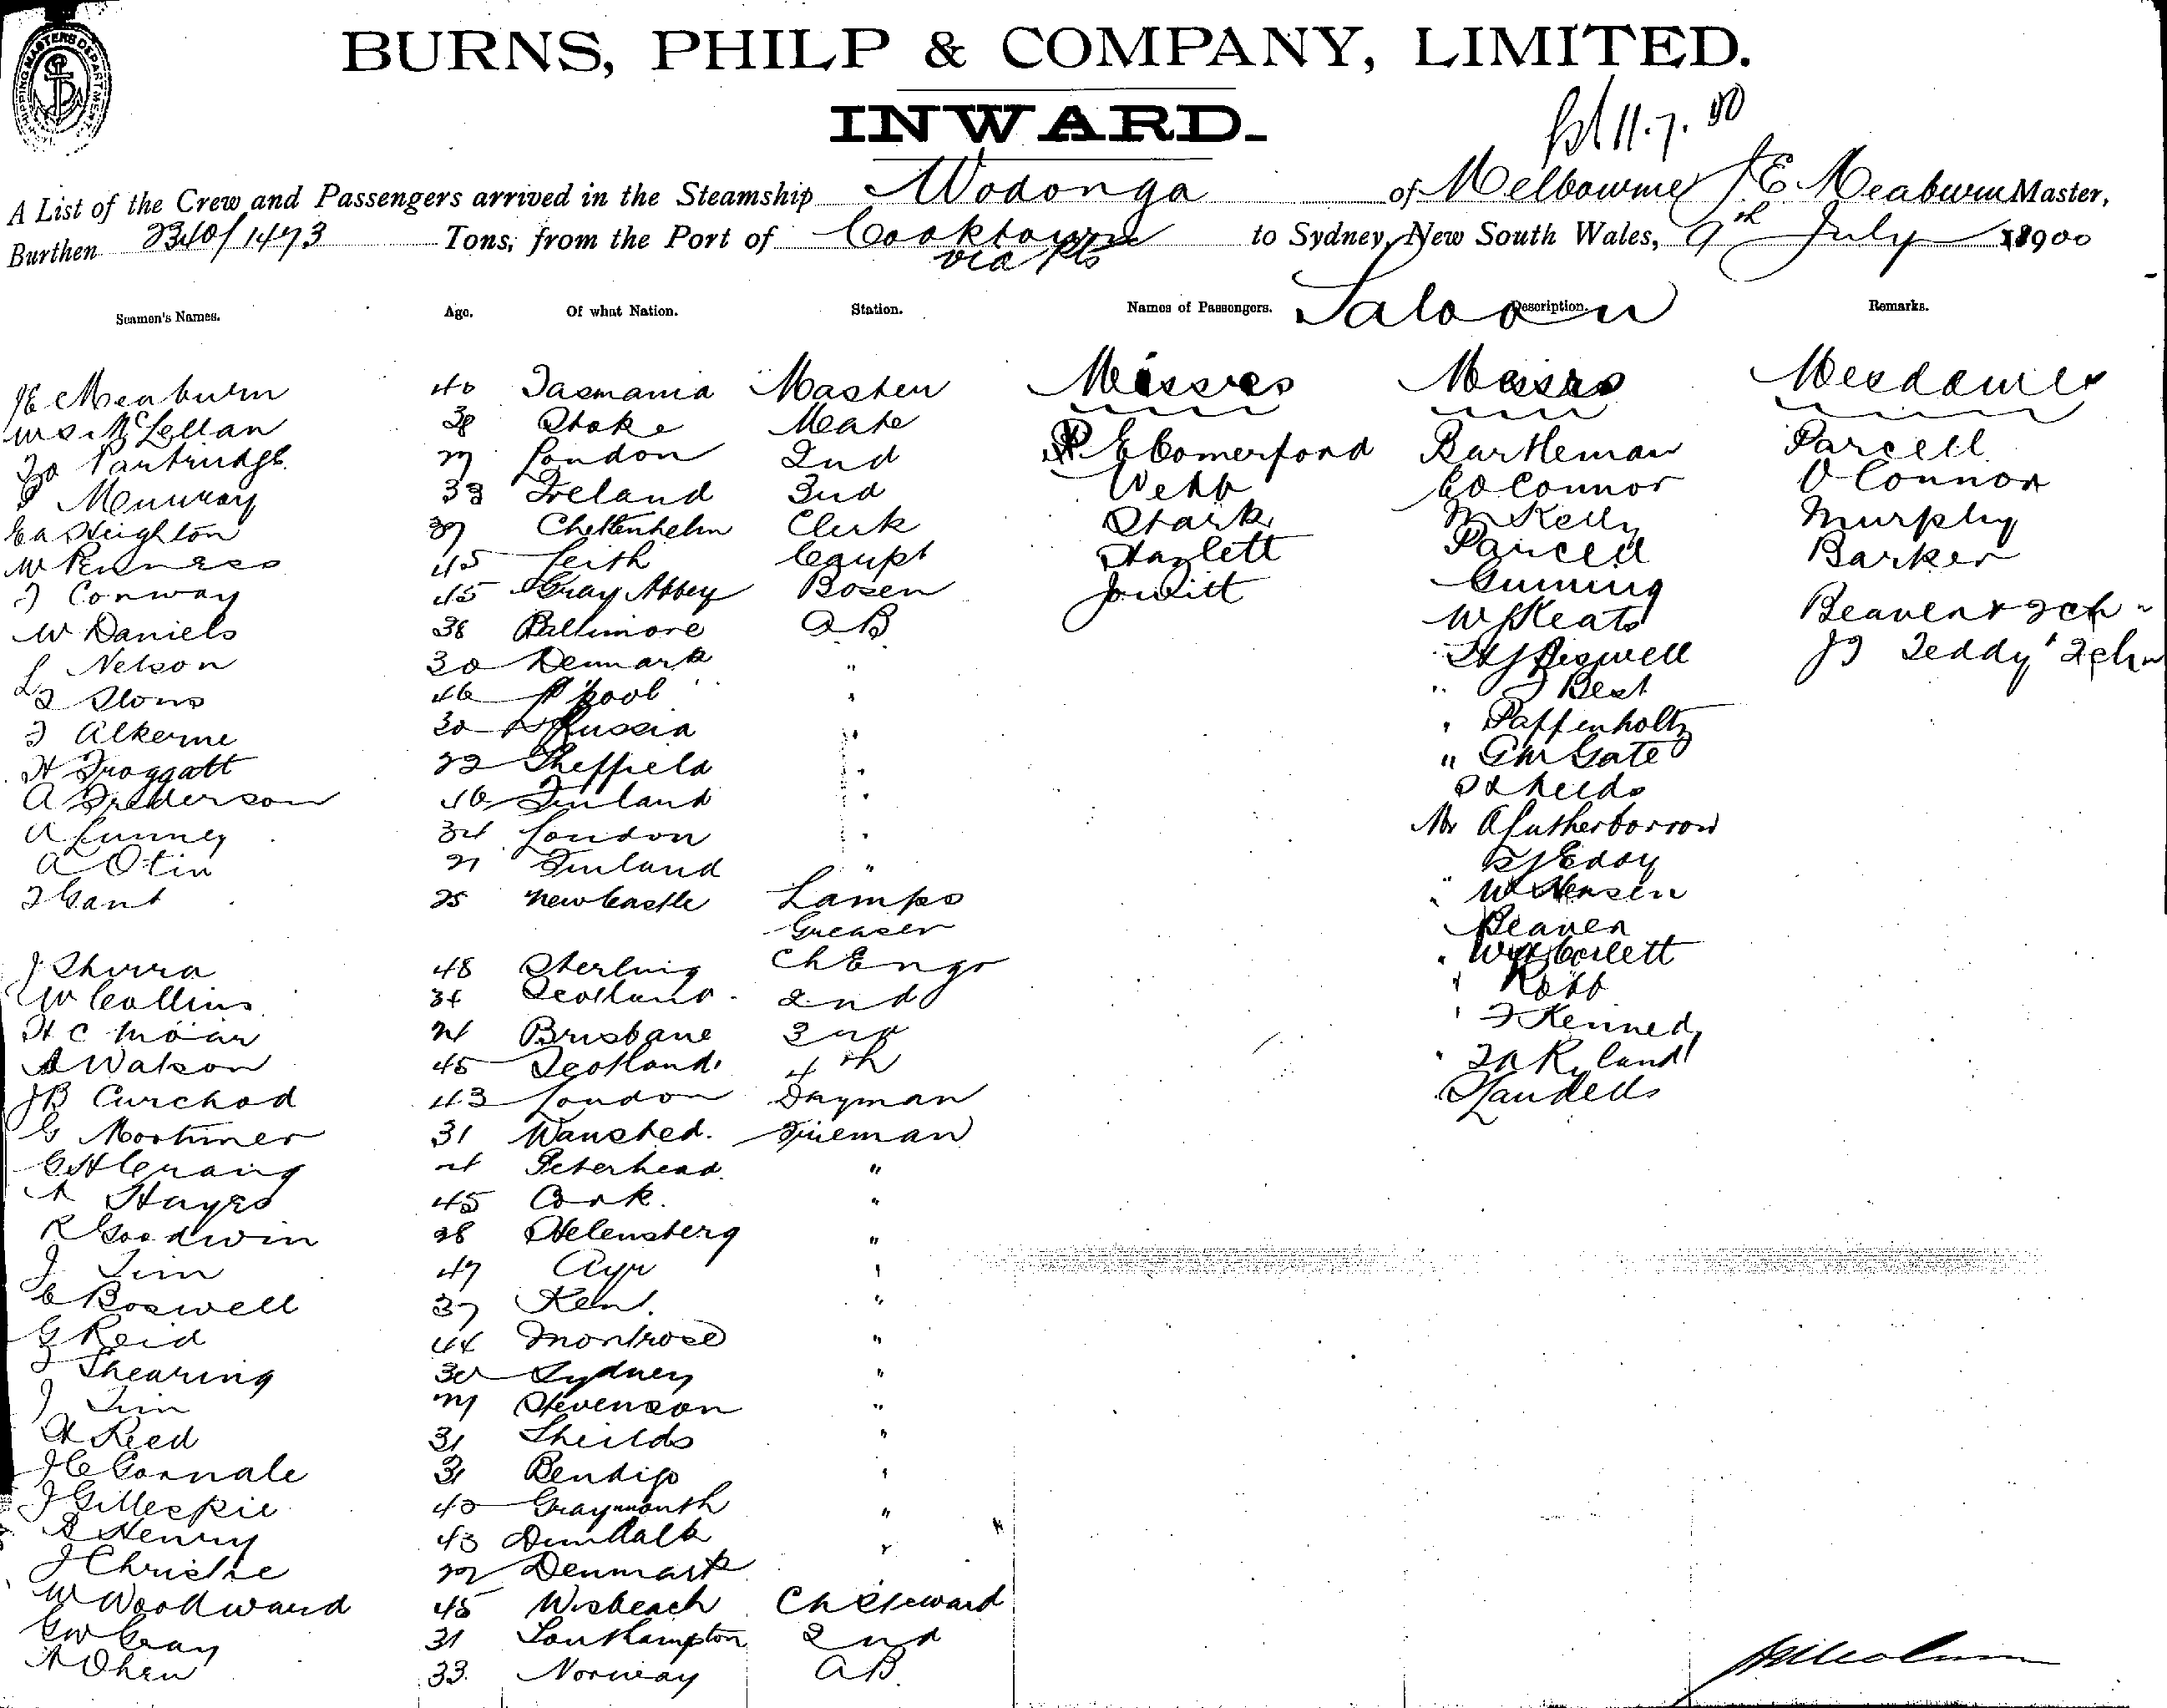 SHIPPING MASTERS DEPARTMENT
BURNS, PHILP & COMPANY, LIMITED.
INWARD.
11.7.00
A List of the Crew and Passengers arrived in the Steamship Wodonga of Melbourne J E Meaburn Master,
Burthen 2340/1473 Tons, from the Port of Cooktown via Pts to Sydney, New South Wales, 9th July 1900
Seamen's Names. Age. Of what Nation. Station. Names of Passengers. Saloon Description. Remarks.
JE Meaburn 40 Tasmania Master Misses Messrs Mesdames
McLellan 38 Stoke Mate E Comerford Bartleman Parcell
Partridge London 2nd Webb O'Connor O Connor
Murray 33 Ireland 3rd Stark Kelly Murphy
Ea Heighton 37 Cheltenhelm Clerk Hazlett Parcell Barker
W 45 Leith Carpt Jowitt Gunning
Conway 45 Gray Abbey Bosen W Keats Beaven & 2ch
W Daniels 38 Baltimore AB Teddy 2chn
L Nelson 30 Denmark " Best
46 L'pool " Paffenholtz
Alkerne 30 Russia " " GM Gate
H Froggatt 22 Sheffield "
A Frederson 46 Finland " Mr A Sutherborrow
A Lunney 34 London " Eday
A Otin 21 Finland " W
Gant 25 Newcastle Lamps Beaven
Greaser
J Shirra 48 Sterling Ch Engr Robb
W Collins 34 Scotland 2nd Kenned
H C Moar 24 Brisbane 3rd Ryland
A Watson 45 Scotland 4th Landells
JB Curchod 43 London Dayman
G Mortimer 31 Wansted. Fireman
GH Craig 24 Peterhead. "
A Hayes 45 Cork. "
R Goodwin 28 Helensberg "
J Sim 47 Ayr "
C Boswell 37 Kent. "
G Reid 44 Montrose "
Shearing 30 Sydney "
J Sim Stevenson "
H Reed 31 Sheilds "
31 Bendigo "
J Gillespie 40 Graymouth "
Henry 43 Dundalk "
J Christie 22 Denmark
W Woodward 45 Wisbeach Ch Steward
GW Gray 31 Southampton 2nd
A Olsen 33. Norway AB.